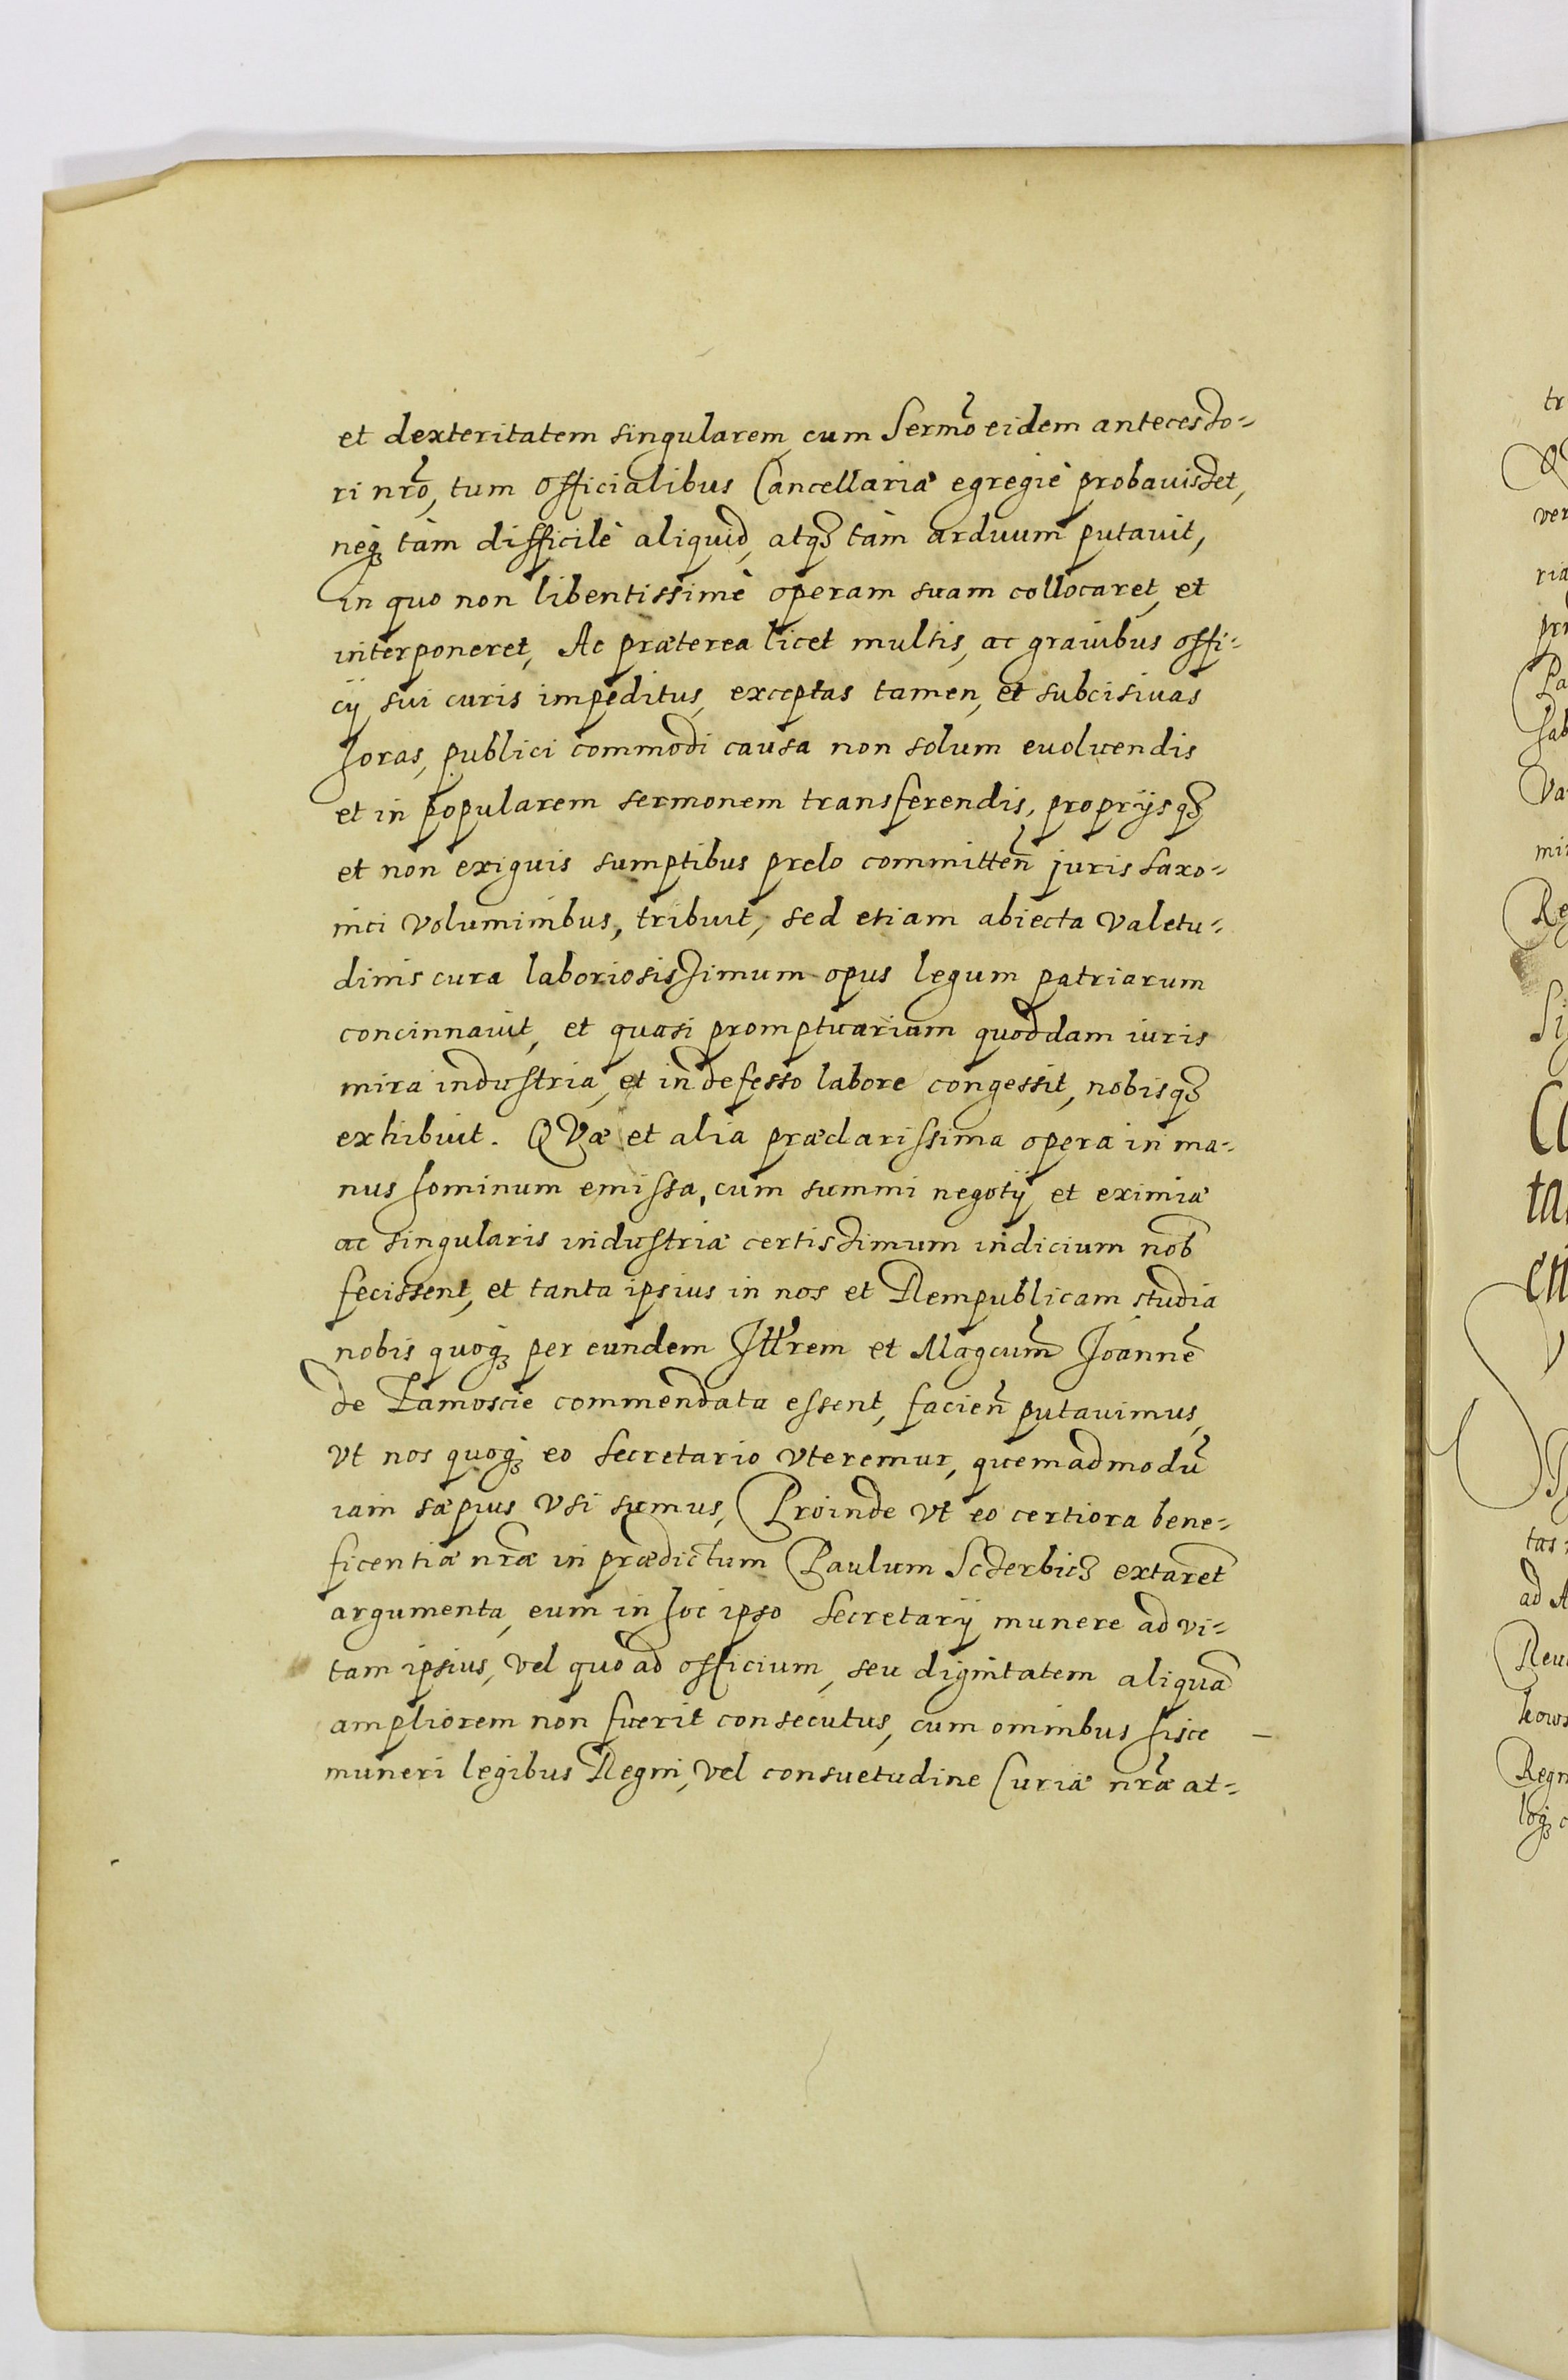 et dexteritatem singularem, cum Sermõ eidem antecesso=
ri nrõ, tum officialibus Cancellariæ egregiè probauisset,
neq; tàm difficilè aliquid, atq3 tàm arduum putauit,
in quo non libentissimè operam suam collocaret, et
interponeret, Ac præterea licet multis, ac grauibus offi=
cÿ sui curis impeditus, exceptas tamen, et subcisiuas
horas, publici commodi causa non solum euoluendis
et in popularem sermonem transferendis, proprÿsq3
et non exiguis sumptibus prelo committeñ juris saxo=
nici voluminibus, tribuit, sed etiam abiecta valetu=
dinis cura laboriosissimum opus legum patriarum
concinnauit, et quasi promptuarium quoddam iuris
mira industria, et indefesso labore congessit, nobisq3
exhibuit. QVæ et alia præclarissima opera in ma=
nus hominum emissa, cum summi negotÿ et eximiæ
ac singularis industriæ certissimum indicium nob̃
fecissent, et tanta ipsius in nos et Rempublicam studia
nobis quoq; per eundem Illr̃em et Magcum̃ Joannẽ
de Zamoscie commendata essent, facieñ putauimus,
vt nos quoq; eo Secretario vteremur, quemadmodũ
iam sæpius vsi sumus, Proinde vt eo certiora bene=
ficentiæ nræ̃ in prædictum Paulum Sczerbicz extarent
argumenta, eum in hoc ipso Secretarÿ munere ad vi=
tam ipsius, vel quoad officium, seu dignitatem aliquã
ampliorem non fuerit consecutus, cum omnibus hisce
muneri legibus Regni, vel consuetudine Curiæ nræ̃ at=